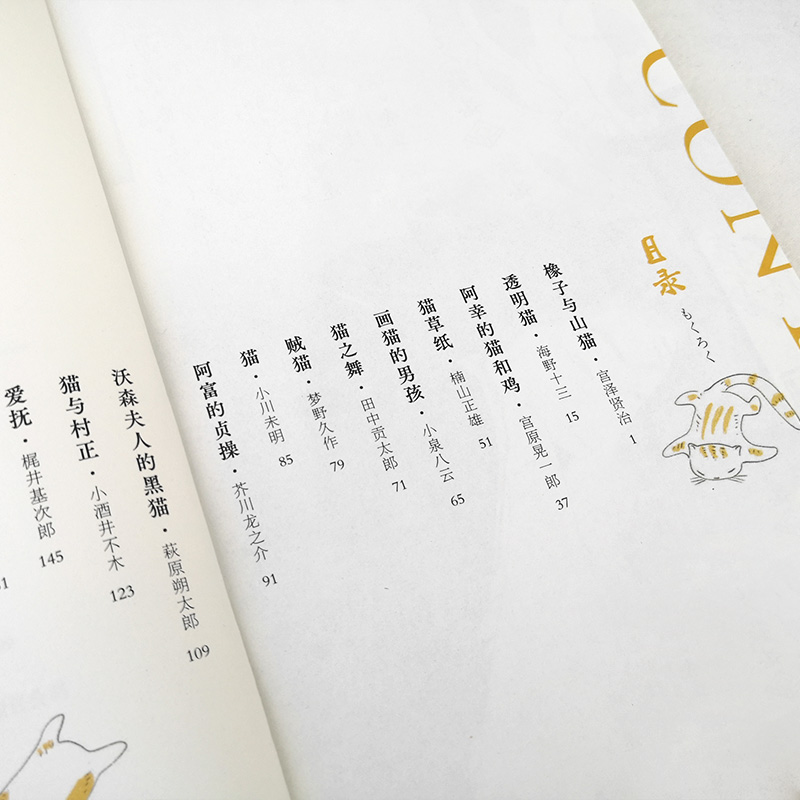 CON
目录
もくろく
橡子与山猫・宫泽贤治 1
透明猫・海野十三 15
阿幸的猫和鸡・宫原晃一郎 37
猫草纸・楠山正雄 51
画猫的男孩・小泉八云 65
猫之舞・田中贡太郎 71
贼猫・梦野久作 79
猫・小川未明 85
阿富的贞操・芥川龙之介 91
沃森夫人的黑猫・萩原朔太郎 109
猫与村正・小酒井不木 123
爱抚・梶井基次郎 145